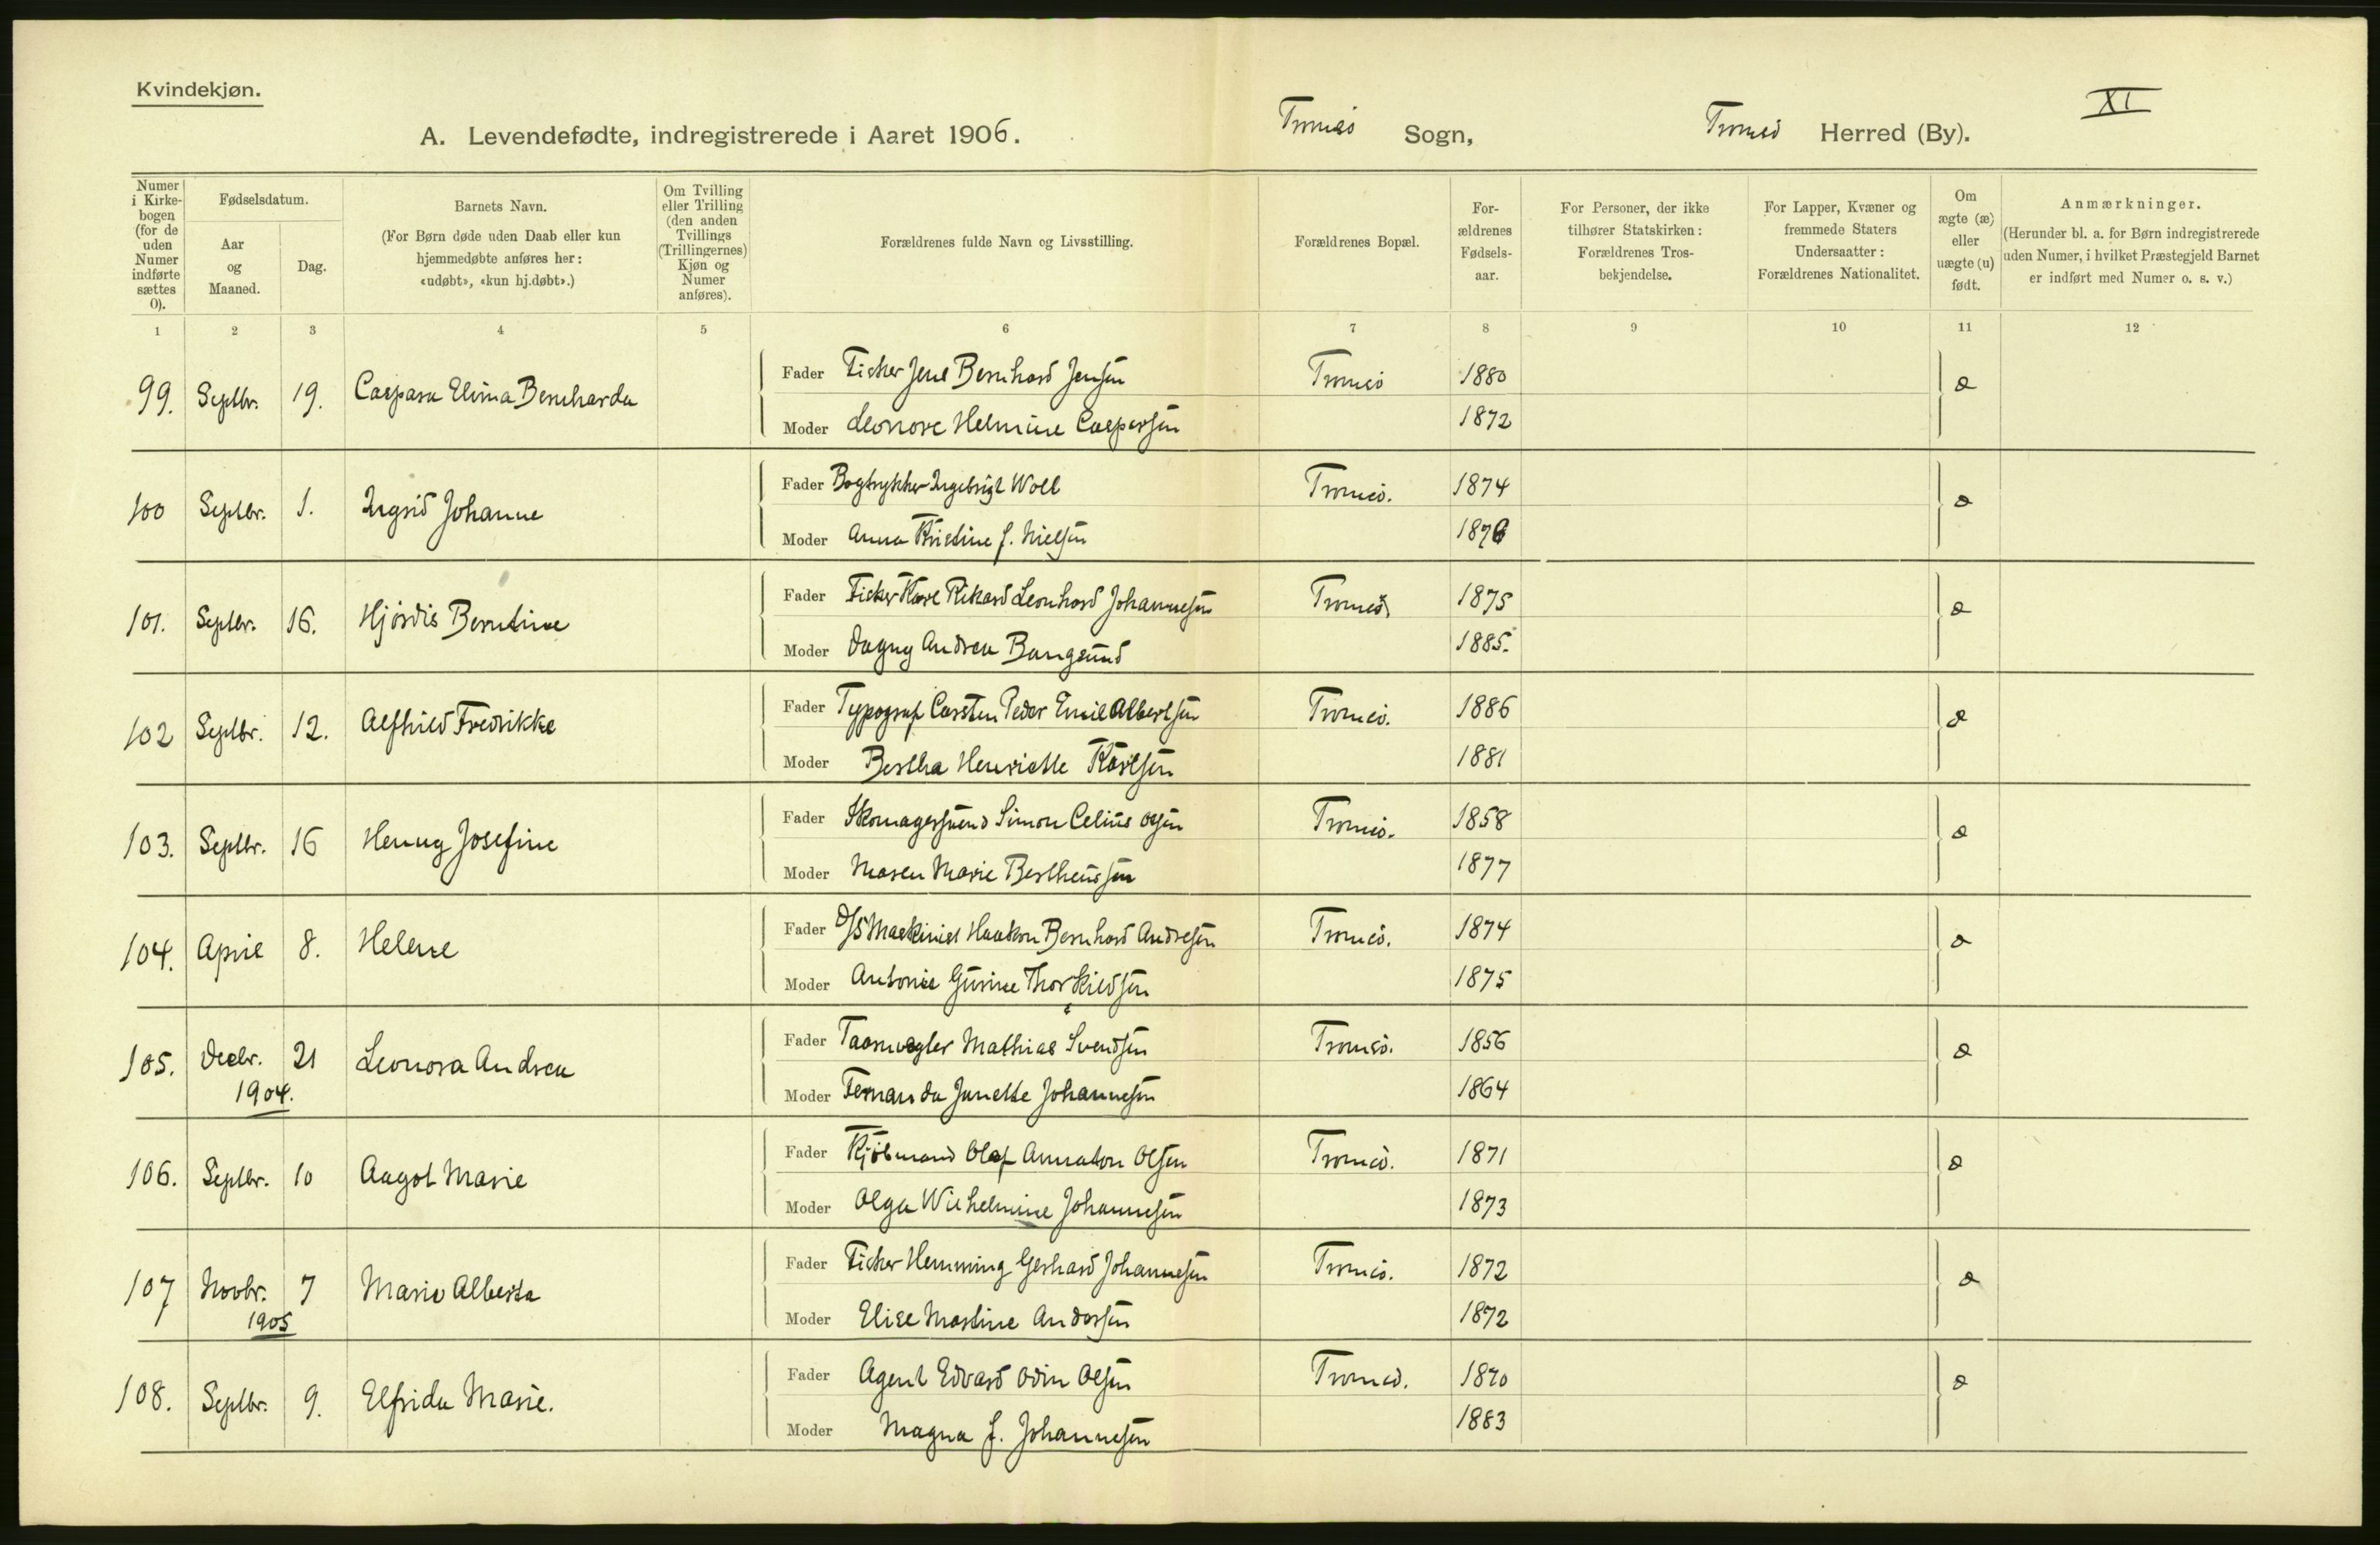 Kvindekjøn.
XI
A. Levendefødte, indregistrerede i Aaret 1906. Tromsø Sogn, Tromsø Herred (By).
Numer i Kirke-bogen (for de uden Numer indførte sættes 0).
Fødselsdatum.
Aar og Maaned.
Dag.
Barnets Navn.
(For Børn døde uden Daab eller kun hjemmedøbte anføres her: «udøbt», «kun hj.døbt».)
Om Tvilling eller Trilling (den anden Tvillings (Trillingernes) Kjøn og Numer anføres).
Forældrenes fulde Navn og Livsstilling.
Forældrenes Bopæl.
For-ældrenes Fødsels-aar.
For Personer, der ikke tilhører Statskirken: Forældrenes Tros-bekjendelse.
For Lapper, Kvæner og fremmede Staters Undersaatter: Forældrenes Nationalitet.
Om ægte (æ) eller uægte (u) født.
Anmærkninger.
(Herunder bl. a. for Børn indregistrerede uden Numer, i hvilket Præstegjeld Barnet er indført med Numer o. s. v.)
1 2 3 4 5 6 7 8 9 10 11 12
99. Septbr. 19. Caspara Elina Bernharda Fader Fisker Jens Bernhard Jensen Tromsø 1880 æ
Moder Leonore Helmine Caspersen 1872
100 Septbr. 1. Ingrid Johanne Fader Bogtrykker Ingebrigt Woll Tromsø. 1874 æ
Moder Anna Kristine f. Nielsen 1876
101. Septbr. 16. Hjørdis Berntine Fader Fisker Karl Rikard Leonhard Johannesen Tromsø. 1875 æ
Moder Dagny Andrea Bangsund 1885.
102 Septbr. 12. Alfhild Fredrikke Fader Typograf Carsten Peder Emil Albertsen Tromsø. 1886 æ
Moder Bertha Henriette Karlsen 1881
103. Septbr. 16 Henny Josefine Fader Skomagersvend Simon Celius Olsen Tromsø. 1858 æ
Moder Maren Marie Bertheussen 1877
104. April 8. Helene Fader D/S Maskinist Haakon Bernhard Andresen Tromsø. 1874 æ
Moder Antonie Gurine Thorkildsen 1875
105. Decbr. 21 Leonora Andrea Fader Taarnvægter Mathias Svendsen Tromsø. 1856 æ
1904. Moder Fernanda Janette Johannesen 1864
106. Septbr. 10 Aagot Marie Fader Kjøbmand Olaf Annaton Olsen Tromsø. 1871 æ
Moder Olga Wilhelmine Johannesen 1873
107 Novbr. 7 Marie Alberta Fader Fisker Hemming Gerhard Johannesen Tromsø. 1872 æ
1905 Moder Elise Martine Andersen 1872
108. Septbr. 9. Elfrida Marie. Fader Agent Edvard Odin Olsen Tromsø. 1870 æ
Moder Magna f. Johannesen 1883